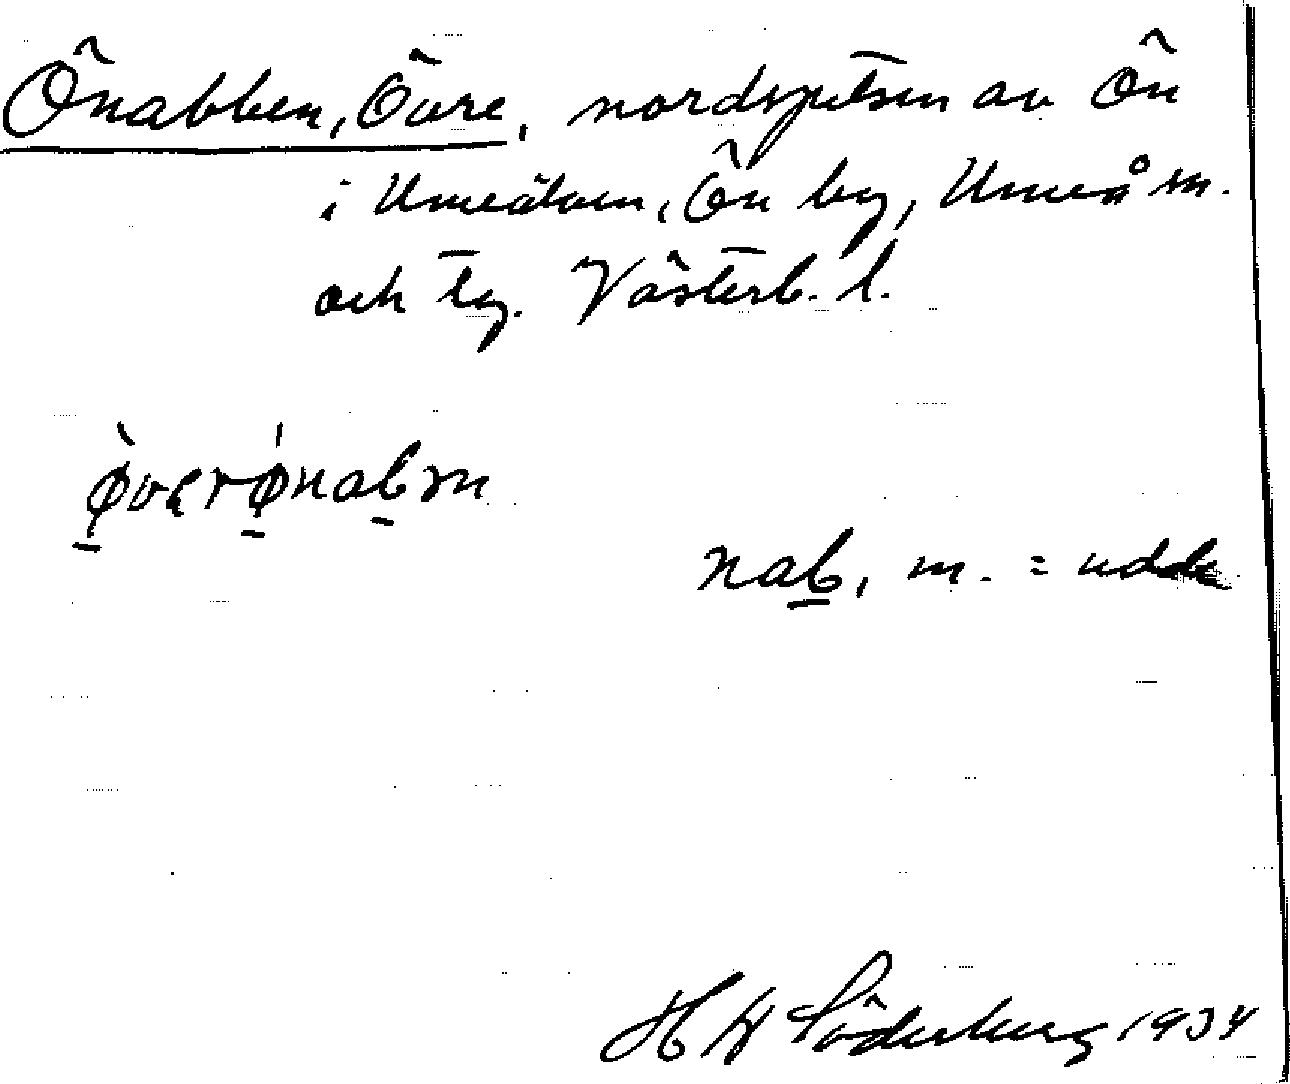 Önabben, Övre, nordspetsen av Ön
i Umeälven, Ön by, Umeå m.
och tg. Västerb. l.
øverønabm
nab, m. = udde
H W Söderberg 1934